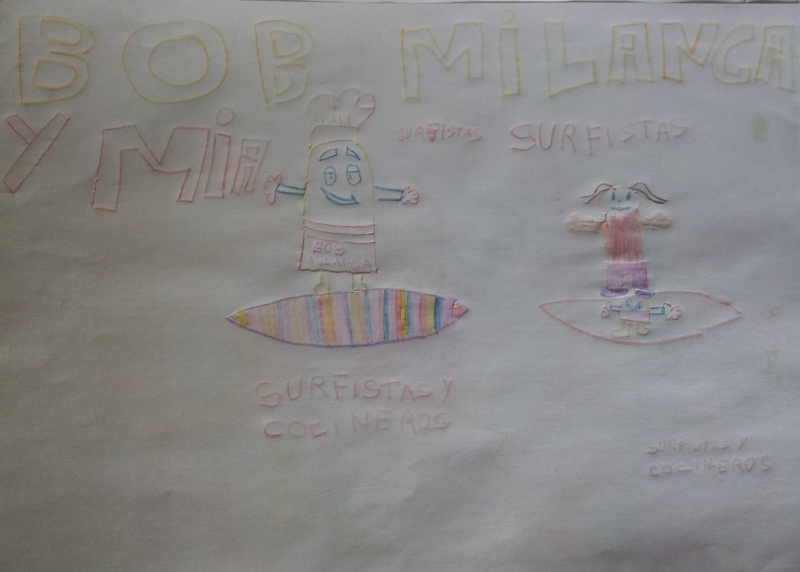 BOB MILANGA
Y MIA
SURFISTAS SURFISTAS
BOB
MILANGA
SURFISTAS Y
COCINEROS
SURFISTAS Y
COCINEROS